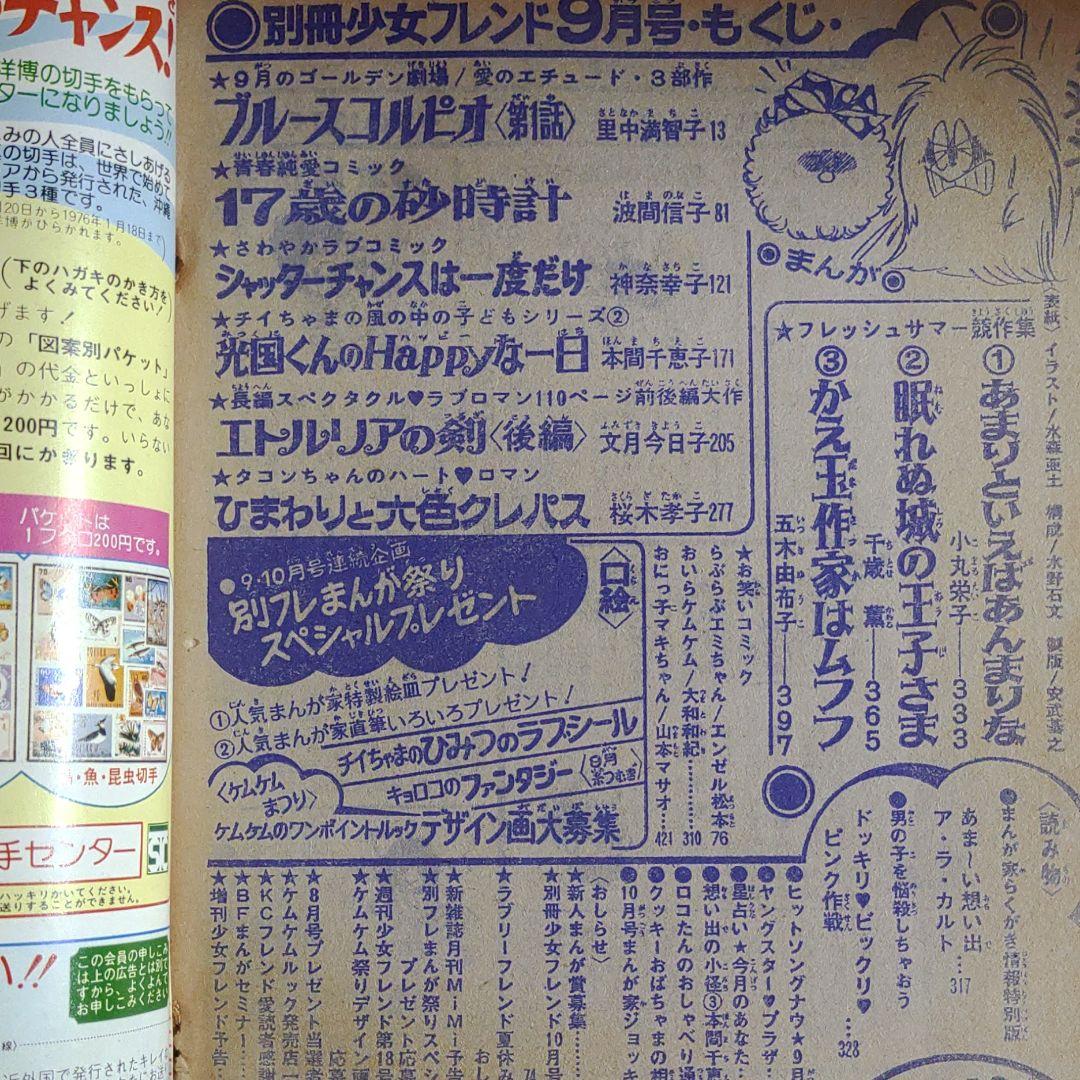 チャンス!
洋博の切手をもらって
ターになりましょう!!
みの人全員にさしあげる
の切手は、世界で始めて
アから発行された、沖縄
手3種です。
20日から1976年1月18日まで
博がひらかれます。
(下のハガキのかき方を
よくみてください!)
げます!
の「図案別パケット」
の代金といっしょに
がかかるだけで、あな
200円です。いらない
回にかぎります。
パケットは
1フクロ200円です。
・魚・昆虫切手
手センター
ハッキリかいてください。
送りすることができません。
い!!
この会員の申しこみ
は上の広告とは別で
すから、よくよんで
お申しこみください
外国で発行されたキレイ
●別冊少女フレンド9月号・もくじ・
★9月のゴールデン劇場/愛のエチュード・3部作
ブルースコルピオ〈第1話〉 里中満智子13
★青春純愛コミック
17歳の砂時計 波間信子81
★さわやかラブコミック
シャッターチャンスは一度だけ 神奈幸子121
★チイちゃまの風の中の子どもシリーズ②
光国くんのHappyな一日 本間千恵子171
★長編スペクタクル♥ラブロマン110ページ前後編大作
エトルリアの剣〈後編〉 文月今日子205
★タコンちゃんのハート♥ロマン
ひまわりと六色クレパス 桜木孝子277
●まんが●
〈表紙〉イラスト/水森亜土 構成/水野石文 製版/安武基之
★フレッシュサマー競作集
①あまりといえばあんまりな
小丸栄子―333
②眠れぬ城の王子さま
千歳 薫―365
③かえ玉作家はムフフ
五木由布子―397
★お笑いコミック
らぶらぶエミちゃん/エンゼル松本76
おいらケムケム/大和和紀………310
おにっ子マキちゃん/山本マサオ…421
〈口絵〉
●9・10月号連続企画
別フレまんが祭り
スペシャルプレゼント
①人気まんが家特製絵皿プレゼント!
②人気まんが家直筆いろいろプレゼント!
チイちゃまのひみつのラブシール
キョロコのファンタジー
〈ケムケム
まつり〉
ケムケムのワンポイントルックデザイン画大募集
〈読み物〉
●まんが家らくがき情報特別版
あま〜い想い出
ア・ラ・カルト
…317
●男の子を悩殺しちゃおう
ドッキリ♥ビックリ♥
ピンク作戦
…328
★ヒットソングナウ★9月
★ヤングスター♥プラザ
■星占い★今月のあなた…
■想い出の小径③本間千恵
■ロコたんのおしゃべり通
■クッキーおばちゃまの相
■10月号まんが家ジョッキ
〈おしらせ〉
★新人まんが賞募集……
★別冊少女フレンド10月号
★ラブリーフレンド夏休み
★新雑誌月刊MiMi予告
★別フレまんが祭りスペシ
プレゼント応募
★週刊少女フレンド第18号
★ケムケム祭りデザイン画
応募
★8月号プレゼント当選者
★ケムケムルック発売店一
★KCフレンド愛読者感謝
★BFまんがセミナー…
★増刊少女フレンド予告…